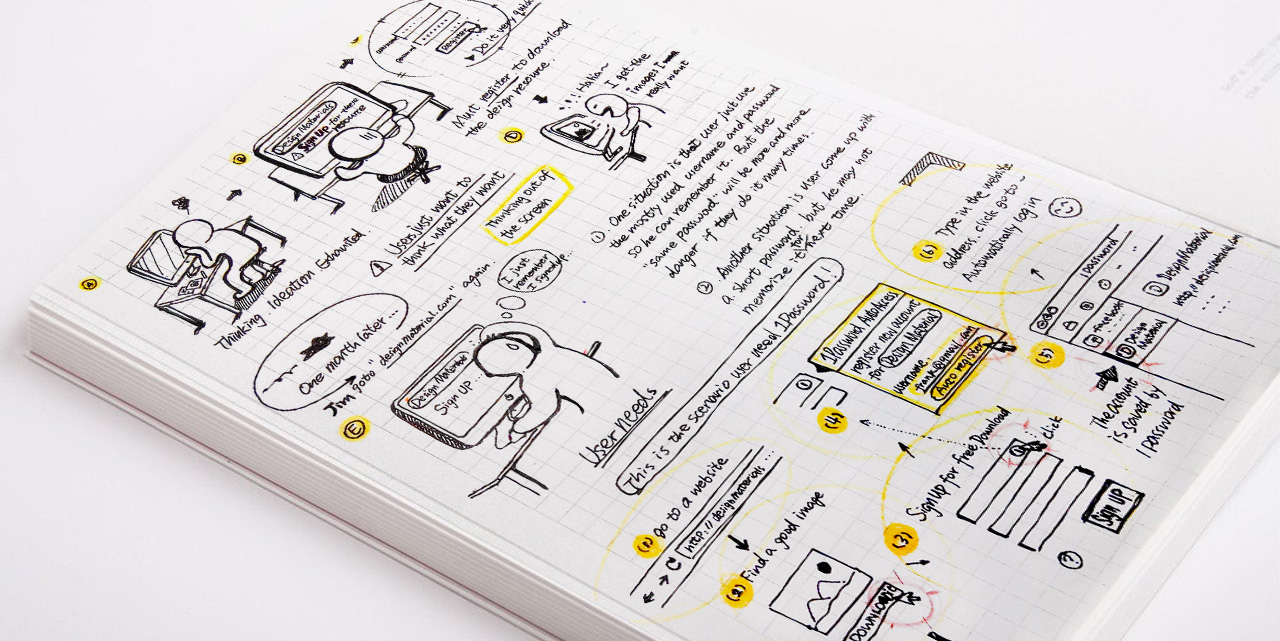 Register
Do it very quick
Must register to download
the design resource.
A
Thinking Ideation Exhausted
B
Design Materials
Sign Up for more
resource
Users just want to
think what they want
D
Italian~
I get the
images I
really want
Thinking out of
the screen
One month later...
Jim goto "designmaterial.com" again.
E
I just
remember
I signed up
Design Material
Sign UP
User Needs
① One situation is that user just use
the mostly used username and password
so he can remember it. But the
"same password" will be more and more
danger if they do it many times.
② Another situation is user come up with
a short password, but he may not
memorize it for next time.
This is the scenario user need 1Password!
(1) go to a website
http://designmaterials...
(2) Find a good image
DOWNLOAD
(3) Sign up for free Download
click
Sign UP
?
(4)
1Password Address
register new account
for Design Material
username:
frank@gmail.com
Auto register
(5)
1password
facebook
Design
Material
Design Material
http://designmaterial.com
The account
is saved by
1password
(6) Type in the website
address, click go to
Automatically log in